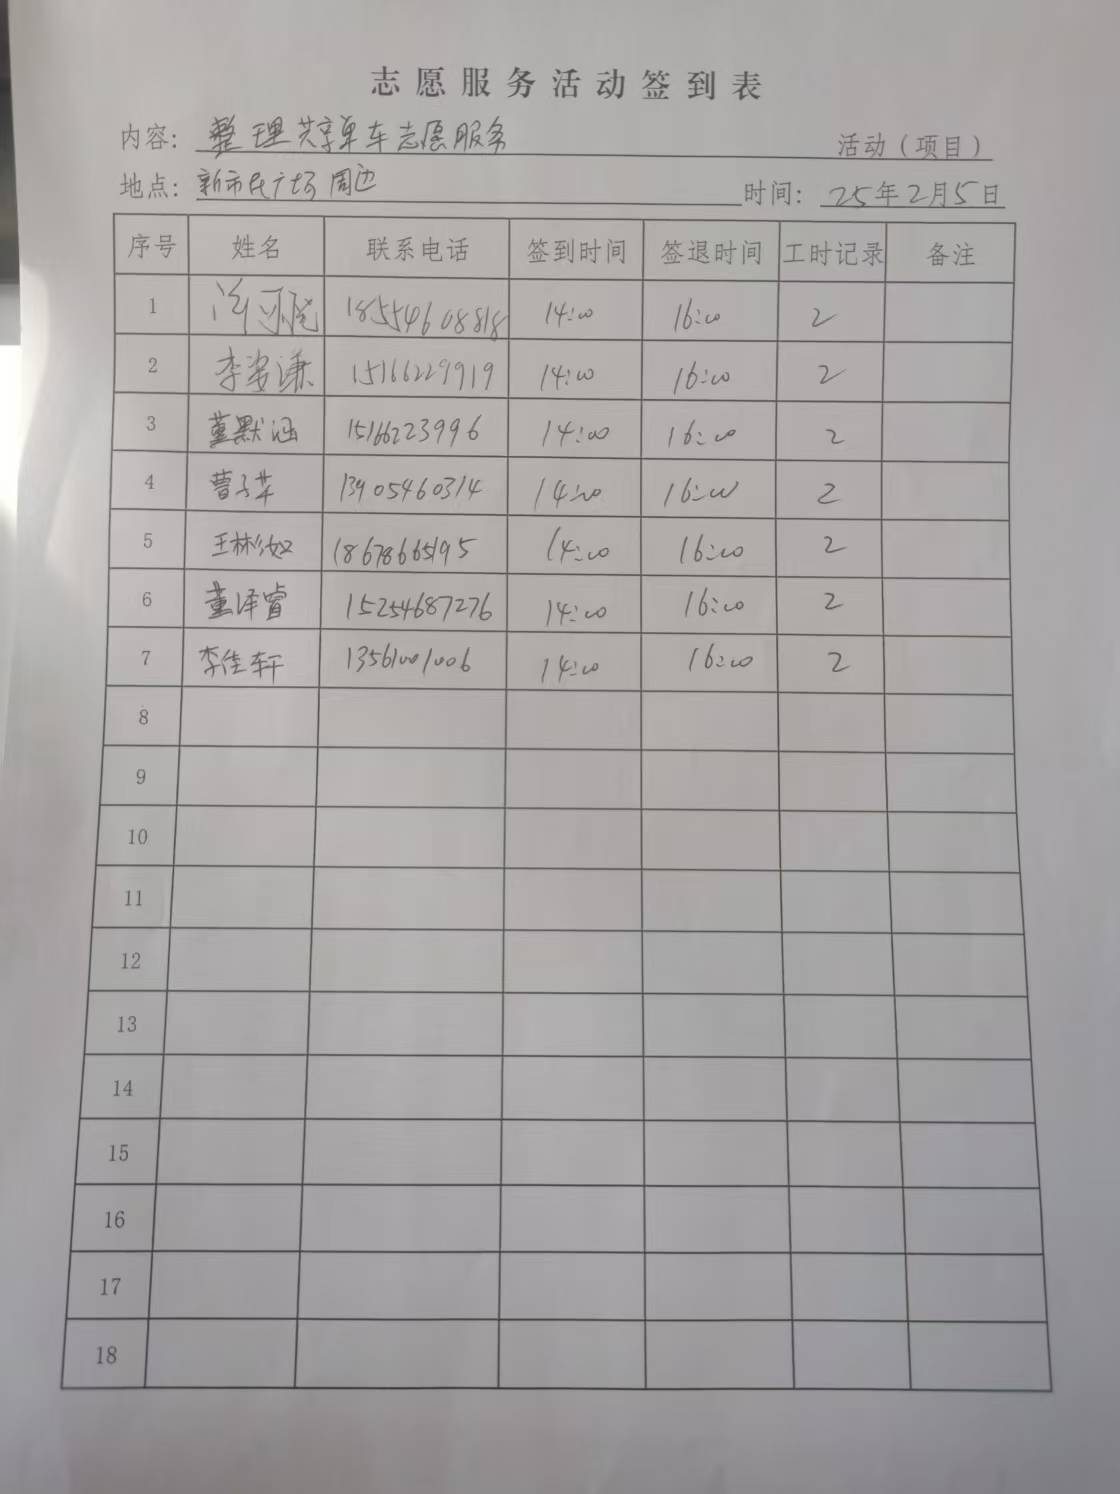 志愿服务活动签到表
内容：整理共享单车志愿服务 活动（项目）
地点：新市民广场周边 时间：25年2月5日
序号 姓名 联系电话 签到时间 签退时间 工时记录 备注
1 18554608818 14:00 16:00 2
2 李姿谦 15166229919 14:00 16:00 2
3 董默涵 15166223996 14:00 16:00 2
4 曹子 13905460314 14:00 16:00 2
5 王彬 18678665195 14:00 16:00 2
6 董泽睿 15254687276 14:00 16:00 2
7 李佳轩 13561001006 14:00 16:00 2
8
9
10
11
12
13
14
15
16
17
18